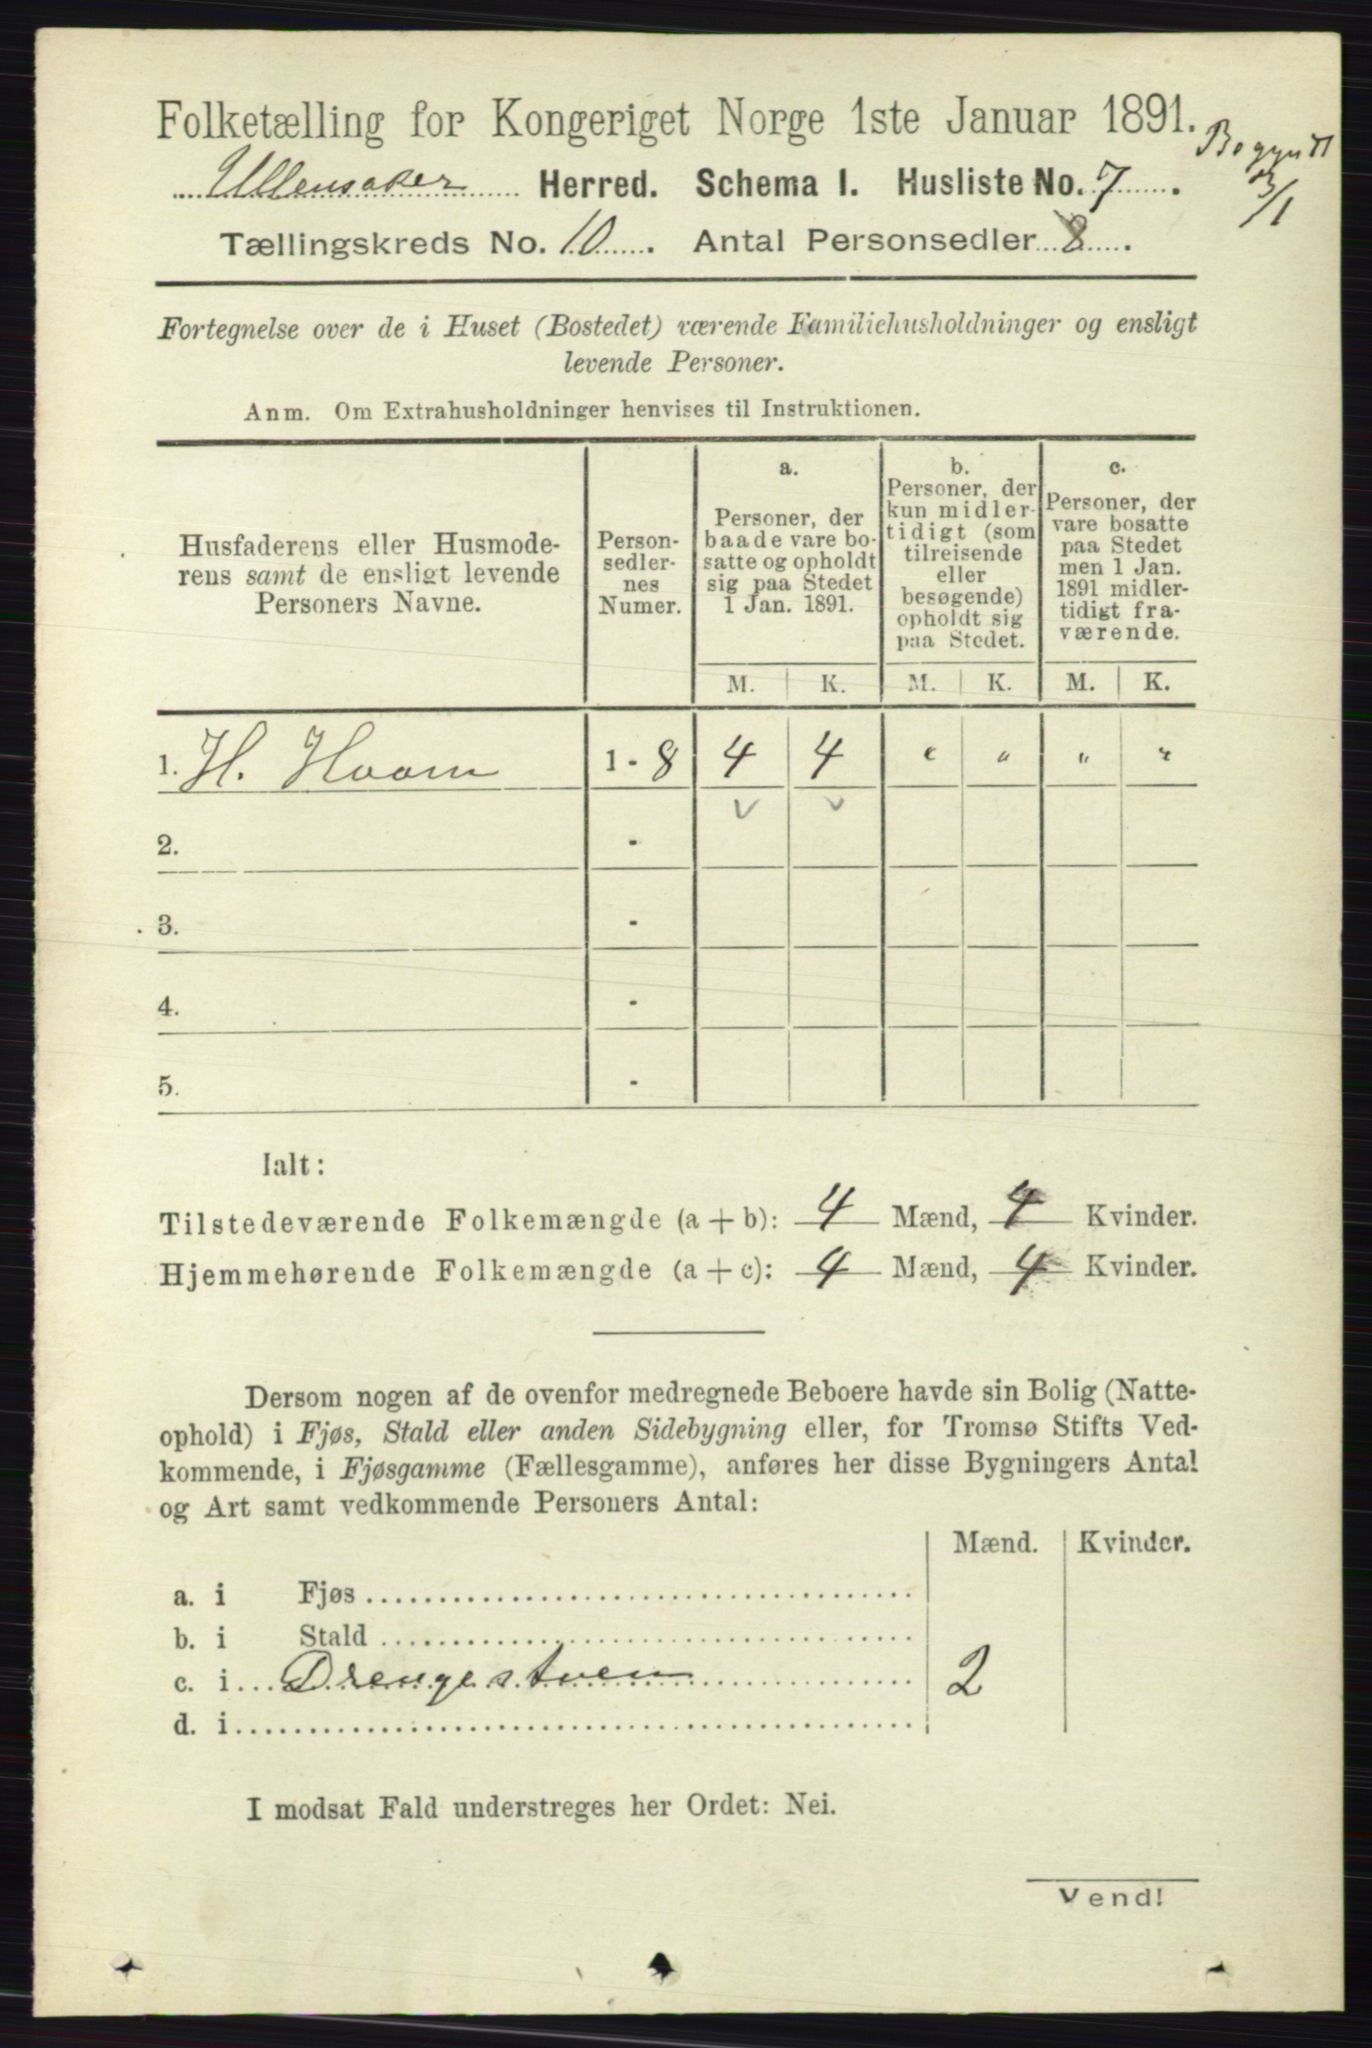 Folketælling for Kongeriget Norge 1ste Januar 1891.
Begyndt
3/1
Ullensaker Herred. Schema I. Husliste No. 7.
Tællingskreds No. 10. Antal Personsedler 8.
Fortegnelse over de i Huset (Bostedet) værende Familiehusholdninger og ensligt
levende Personer.
Anm. Om Extrahusholdninger henvises til Instruktionen.
Husfaderens eller Husmode-
rens samt de ensligt levende
Personers Navne.
Person-
sedler-
nes
Numer.
a.
Personer, der
baade vare bo-
satte og opholdt
sig paa Stedet
1 Jan. 1891.
b.
Personer, der
kun midler-
tidigt (som
tilreisende
eller
besøgende)
opholdt sig
paa Stedet.
c.
Personer, der
vare bosatte
paa Stedet
men 1 Jan.
1891 midler-
tidigt fra-
værende.
M. K. M. K. M. K.
1. H. Haam 1 - 8 4 4 " " " "
2. -
3. -
4. -
5. -
Ialt:
Tilstedeværende Folkemængde (a + b): 4 Mænd, 4 Kvinder.
Hjemmehørende Folkemængde (a + c): 4 Mænd, 4 Kvinder.
Dersom nogen af de ovenfor medregnede Beboere havde sin Bolig (Natte-
ophold) i Fjøs, Stald eller anden Sidebygning eller, for Tromsø Stifts Ved-
kommende, i Fjøsgamme (Fællesgamme), anføres her disse Bygningers Antal
og Art samt vedkommende Personers Antal:
Mænd. Kvinder.
a. i Fjøs
b. i Stald
c. i Drengestuen 2
d. i
I modsat Fald understreges her Ordet: Nei.
Vend!